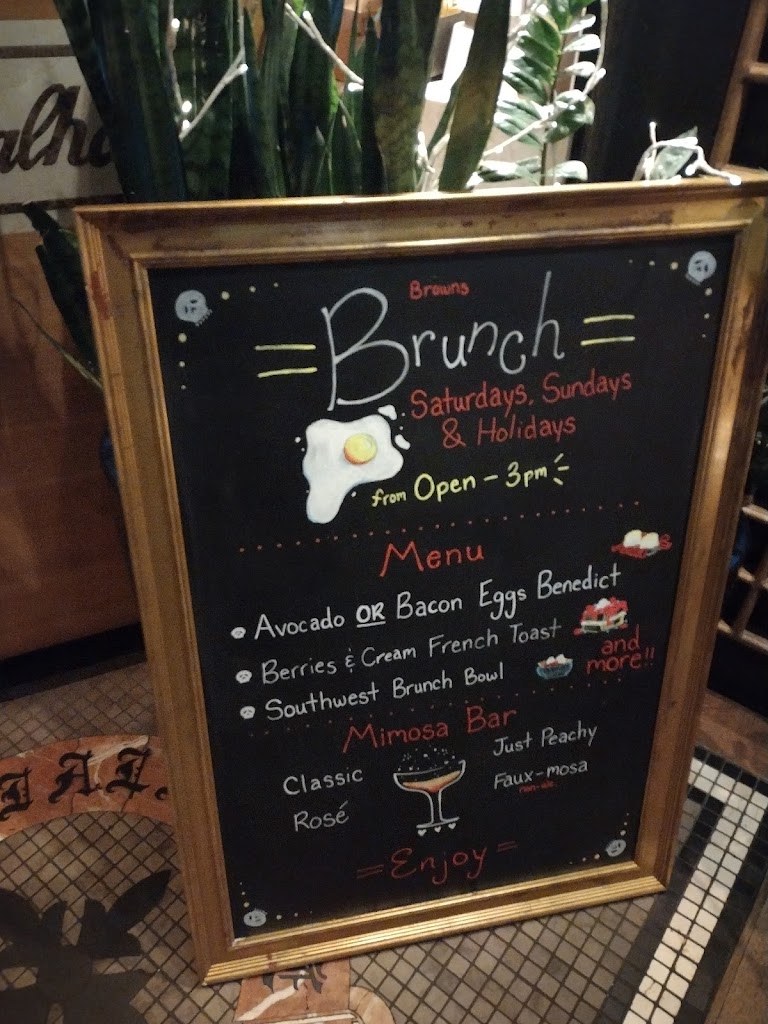 Browns
Brunch
Saturdays, Sundays
& Holidays
from Open - 3pm
Menu
Avocado OR Bacon Eggs Benedict
Berries & Cream French Toast
Southwest Brunch Bowl
and
more!!
Mimosa Bar
Classic
Rosé
Just Peachy
Faux-mosa
non-alc.
=Enjoy=